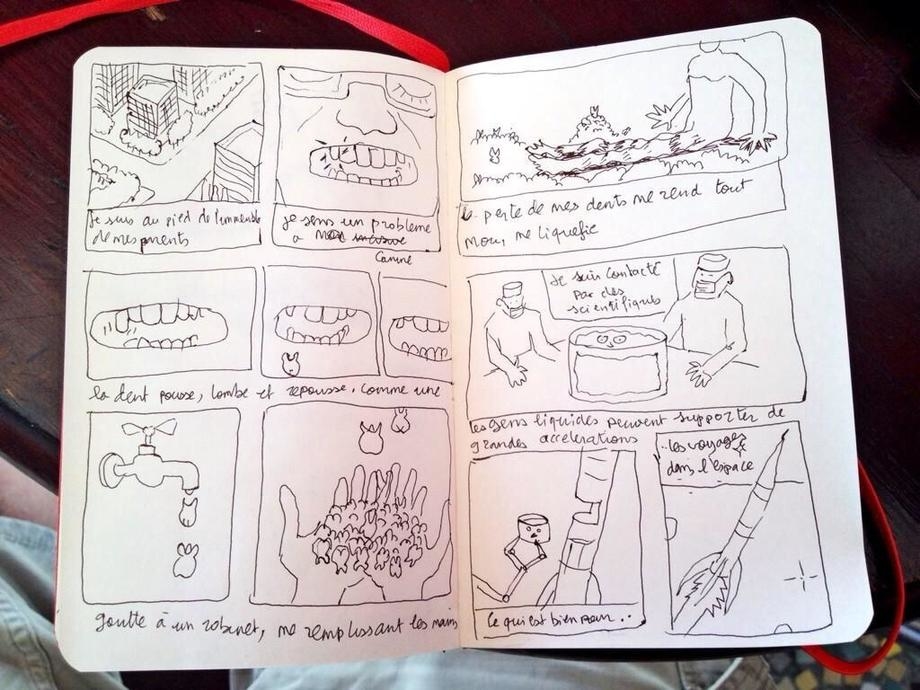 Je suis au pied de l'immeuble
de mes parents
je sens un problème
a mon incisive
Canine
la dent pousse, tombe et repousse, comme une
goutte à un robinet, me remplissant les mains
la perte de mes dents me rend tout
mou, me liquéfie
Je suis contacté
par des
scientifiques
les gens liquides peuvent supporter de
grandes accelerations
Ce qui est bien pour ..
..les voyages
dans l'espace